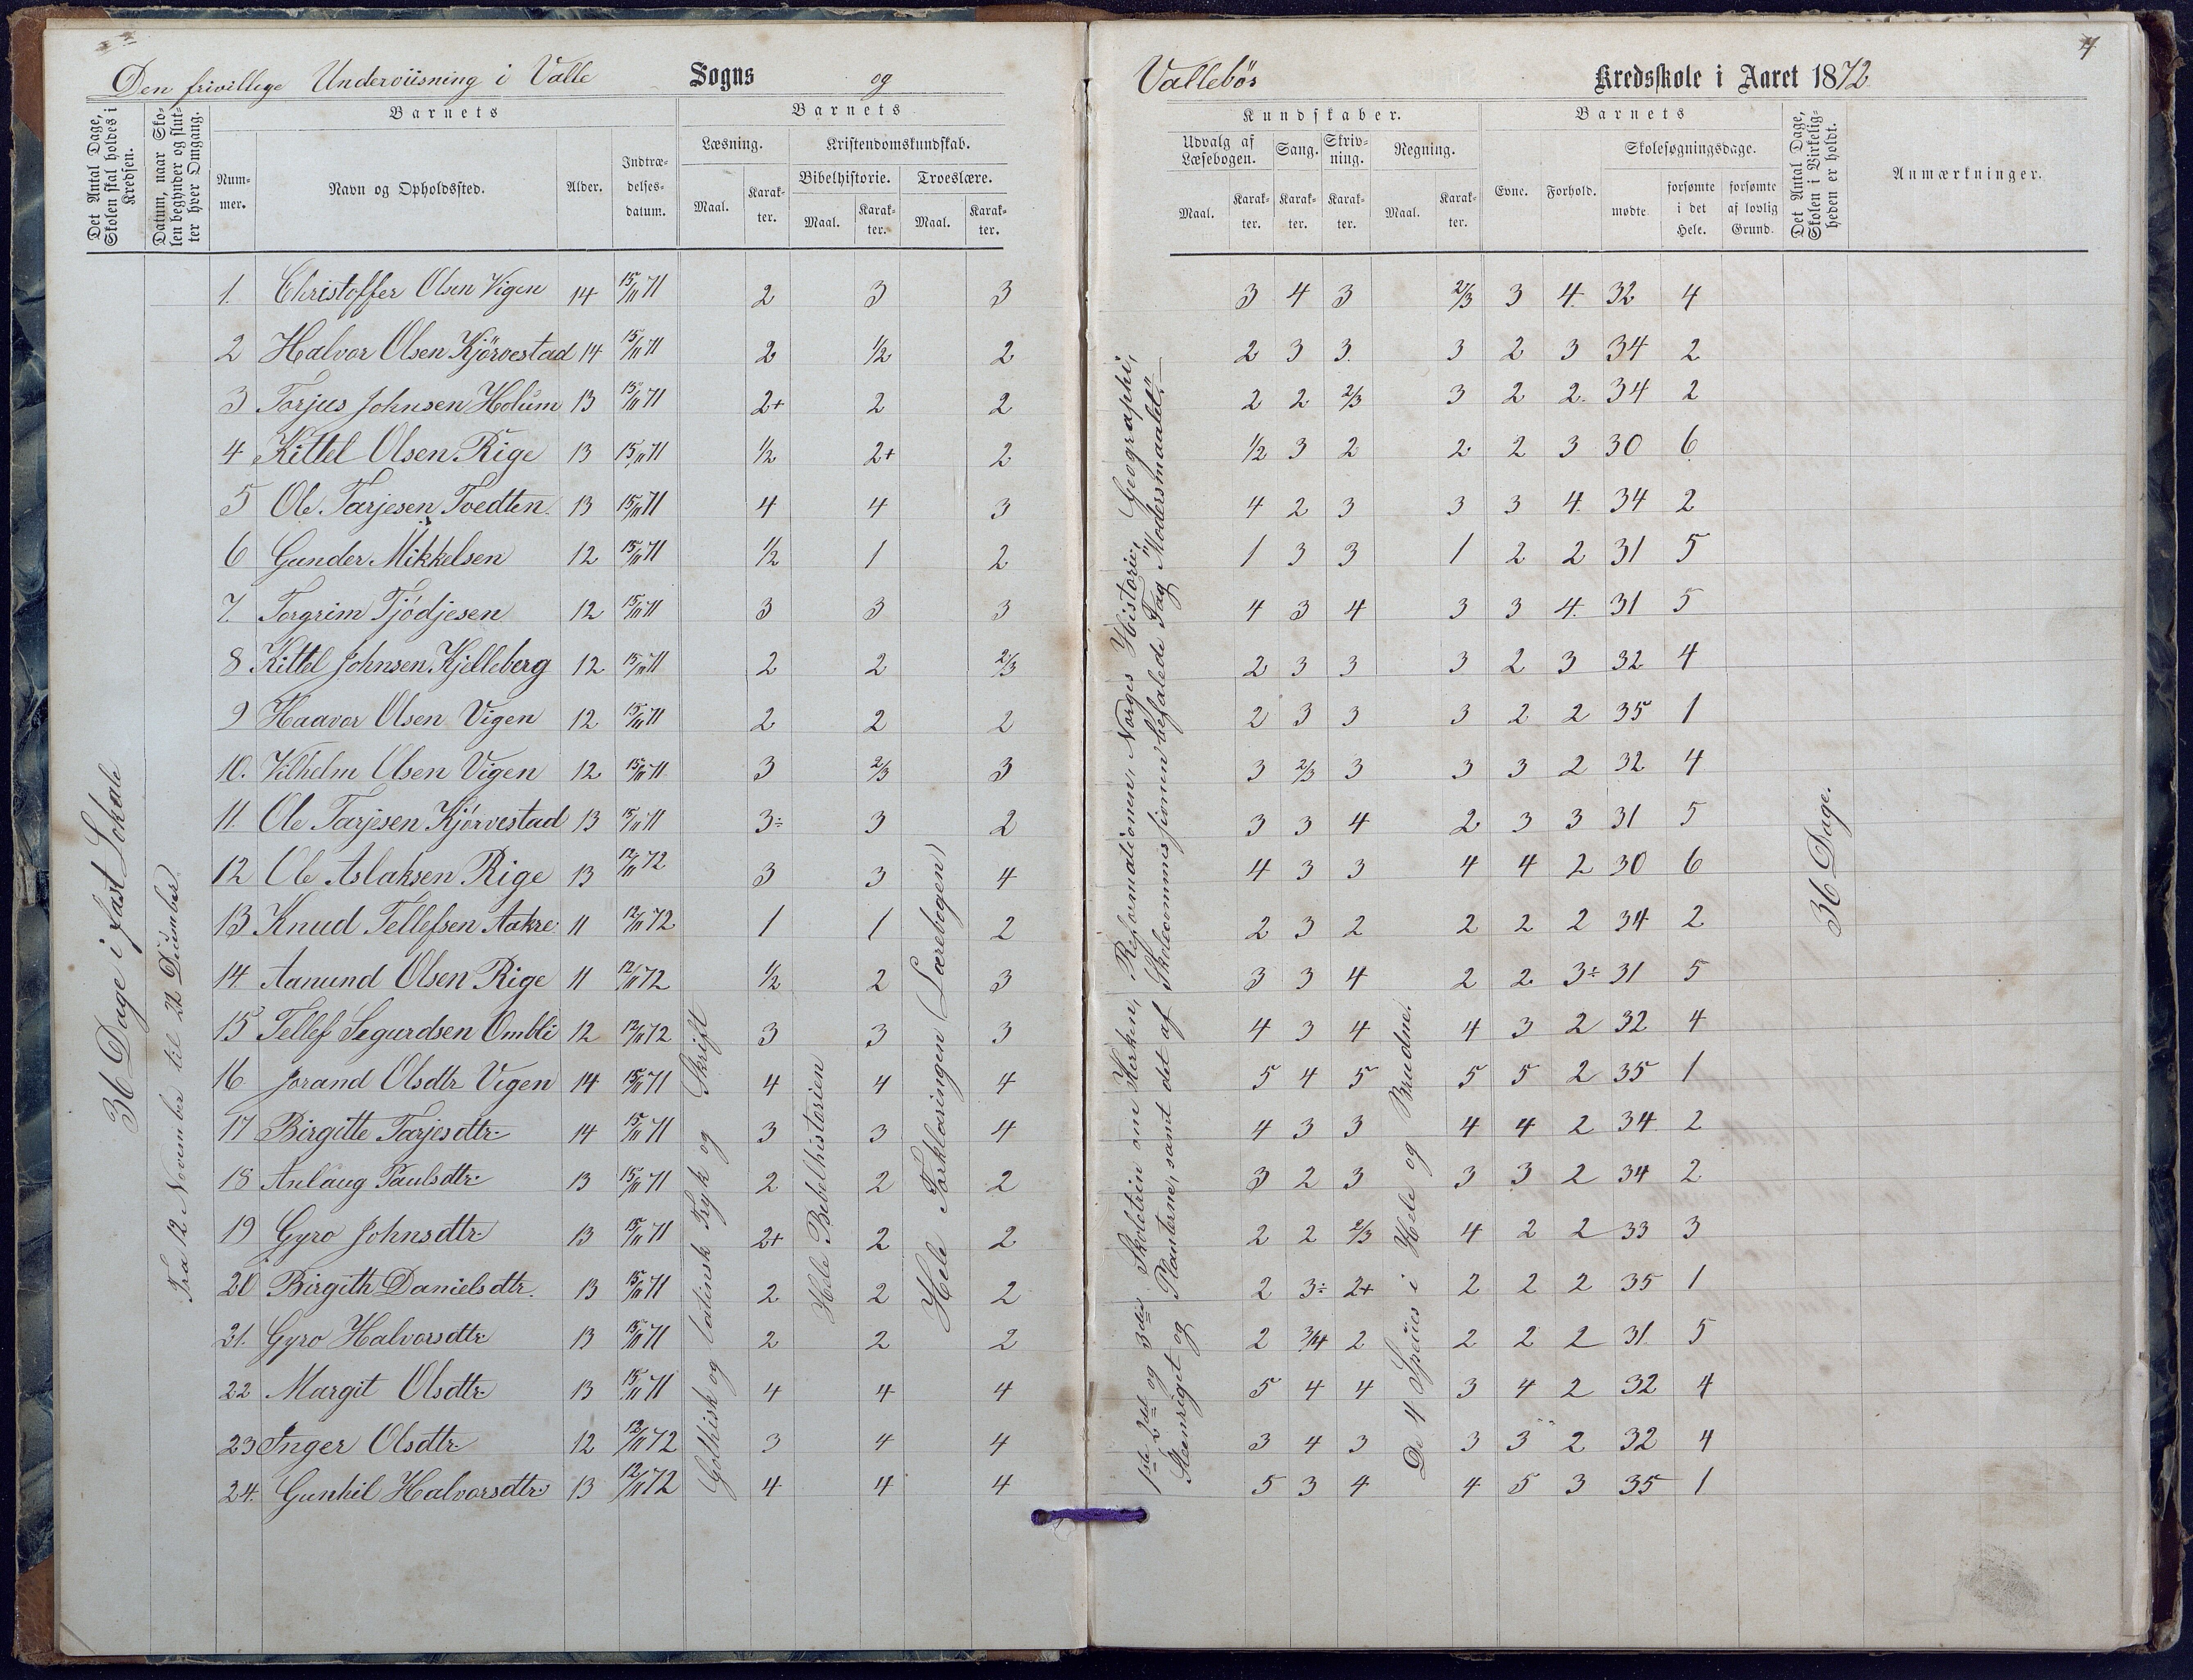 Den frivillege Underviisning i Valle Sogns og Vallebös Kredsskole i Aaret 1872
4
Det Antal Dage, Skolen skal holdes i Kredsen.
Datum, naar Skolen begynder og slutter hver Omgang.
Barnets
Nummer.
Navn og Opholdssted.
Alder.
Indtrædelses-datum.
Barnets
Læsning.
Maal.
Karakter.
Kristendomskundskab.
Bibelhistorie.
Maal.
Karakter.
Troeslære.
Maal.
Karakter.
Kundskaber.
Udvalg af Læsebogen.
Maal.
Karakter.
Sang.
Karakter.
Skrivning.
Karakter.
Regning.
Maal.
Karakter.
Barnets
Evne.
Forhold.
Skolesøgningsdage.
mødte
forsømte i det Hele.
forsømte af lovlig Grund.
Det Antal Dage, Skolen i Virkeligheden er holdt.
Anmærkninger.
36 Dage i fast Lokale
Fra 12 November til 21 December
Gothisk og latinsk Tryk og Skrift
Hele Bibelhistorien
Hele Forklaringen (Lærebogen)
1ste 2det og 3die Skoletrin om Kirken, Reformationen, Norges Historie, Geographi,
Steenriget og Planterne, samt det af Skolecommissionen befalede Fag "Modersmaalet".
De 4 Species i Hele og Brudne.
36 Dage.
1. Christoffer Olsen Vigen 14 15/11 71 2 3 3 3 4 3 2/3 3 4. 32 4
2 Halvor Olsen Kjörvestad 14 15/11 71 2 1/2 2 2 3 3. 3 2 3 34 2
3 Torjus Johnsen Holum 13 15/11 71 2+ 2 2 2 2 2/3 3 2 2. 34 2
4 Kittel Olsen Rige 13 15/11 71 1/2 2+ 2 1/2 3 2 2 2 3 30 6
5 Ole Tarjesen Tvedten 13 15/11 71 4 4 3 4 2 3 3 3 4. 34 2
6 Gunder Mikkelsen 12 15/11 71 1/2 1 2 1 3 3 1 2 2 31 5
7. Torgrim Tjödjesen 12 15/11 71 3 3 3 4 3 4 3 3 4. 31 5
8 Kittel Johnsen Kjelleberg 12 15/11 71 2 2 2/3 2 3 3 3 2 3 32 4
9 Haavor Olsen Vigen 12 15/11 71 2 2 2 2 3 3 3 2 2 35 1
10. Vilhelm Olsen Vigen 12 15/11 71 3 2/3 3 3 2/3 3 3 3 2 32 4
11. Ole Tarjesen Kjörvestad 13 15/11 71 3÷ 3 2 3 3 4 2 3 3 31 5
12 Ole Aslaksen Rige 13 12/11 72 3 3 4 4 3 3 4 4 2 30 6
13 Knud Tellefsen Aakre 11 12/11 72 1 1 2 2 3 2 2 2 2 34 2
14 Aanund Olsen Rige 11 12/11 72 1/2 2 3 3 3 4 2 2 3÷ 31 5
15 Tellef Segurdsen Ombli 12 12/11 72 3 3 3 4 3 4 4 3 2 32 4
16 Jorand Olsdtr Vigen 14 15/11 71 4 4 4 5 4 5 5 5 2 35 1
17 Birgitte Tarjesdtr 14 15/11 71 3 3 4 4 3 3 4 4 2 34 2
18 Anlaug Paulsdtr 13 15/11 71 2 2 2 3 2 3 3 3 2 34 2
19 Gyro Johnsdtr 13 15/11 71 2+ 2 2 2 2 2/3 4 2 2 33 3
20 Birgith Danielsdtr. 13 15/11 71 2 2 2 2 3÷ 2+ 2 2 2 35 1
21. Gyro Halvorsdtr 13 15/11 71 2 2 2 2 3/4 2 2 2 2 31. 5
22 Margit Olsdtr 13 15/11 71 4 4 4 5 4 4 3 4 2 32 4
23 Inger Olsdtr 12 12/11 72 3 4 4 3 4 3 3 3 2 32 4
24. Gunhil Halvorsdtr 13 12/11 72 4 4 4 5 3 4 4 5 3 35 1